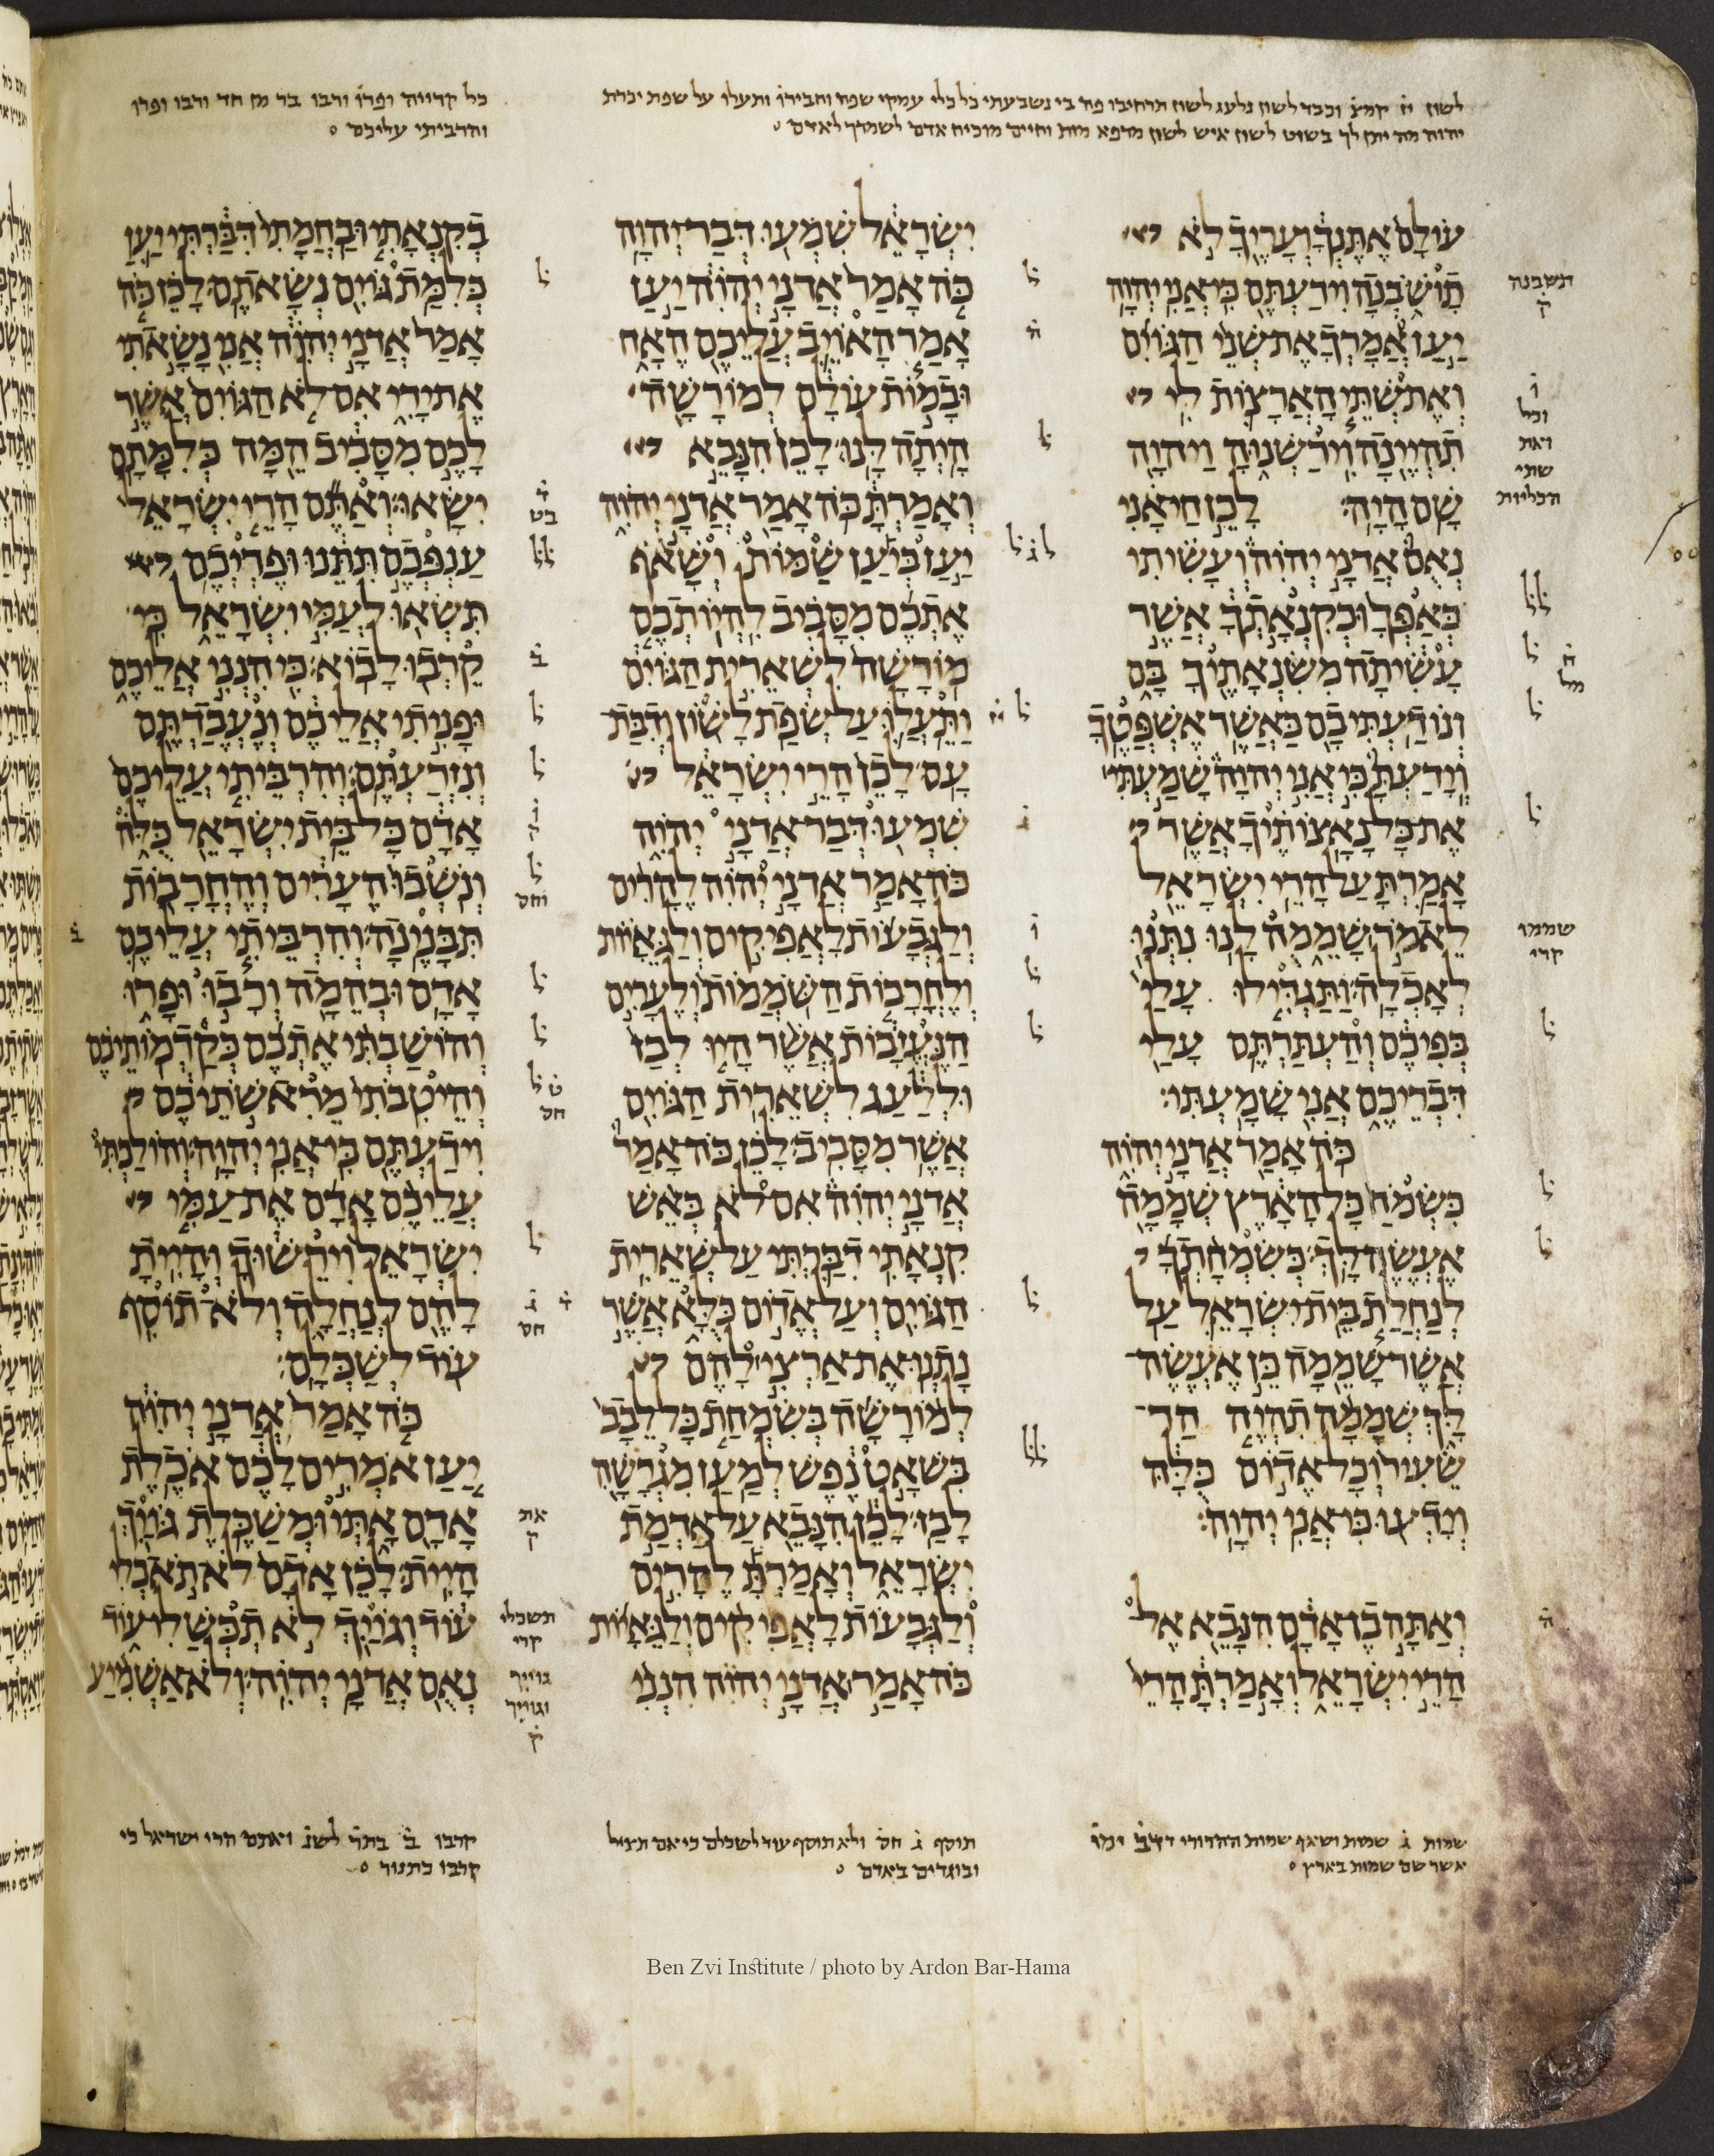 לשון יז קמצ וכבד לשון נלעג לשון תרחיבו פה בי נשבעתי כל כלי עמקי שפה וחבירו ותעלו על שפת יכרת
יהוה מה יתן לך בשוט לשון איש לשון מרפא מות וחיים מוכיח אדם לשמרך לאדם
כל קרייה ופרו ורבו בר מן חד ורבו ופרו
והרביתי עליכם
עולם אתנך ועריך לא
תישבנה וידעתם כי אני יהוה
יען אמרך את שני הגוים
ואת שתי הארצות לי
תהיינה וירשנוה ויהוה
שם היה׃ לכן חי אני
נאם אדני יהוה ועשיתי
כאפך וכקנאתך אשר
עשיתה משנאתיך בם
ונודעתי בם כאשר אשפטך
וידעת כי אני יהוה שמעתי
את כל נאצותיך אשר
אמרת על הרי ישראל
לאמר שממה לנו נתנו
לאכלה׃ ותגדילו עלי
בפיכם והעתרתם עלי
דבריכם אני שמעתי׃
כה אמר אדני יהוה
כשמח כל הארץ שממה
אעשה לך׃ כשמחתך
לנחלת בית ישראל על
אשר שממה כן אעשה
לך שממה תהיה הר
שעיר וכל אדום כלה
וידעו כי אני יהוה׃
ואתה בן אדם הנבא אל
הרי ישראל ואמרת הרי
ישראל שמעו דבר יהוה
כה אמר אדני יהוה יען
אמר האויב עליכם האח
ובמות עולם למורשה
היתה לנו׃ לכן הנבא
ואמרת כה אמר אדני יהוה
יען ביען שמות ושאף
אתכם מסביב להיותכם
מורשה לשארית הגוים
ותעלו על שפת לשון ודבת
עם׃ לכן הרי ישראל
שמעו דבר אדני יהוה
כה אמר אדני יהוה להרים
ולגבעות לאפיקים ולגאיות
ולחרבות השממות ולערים
הנעזבות אשר היו לבז
וללעג לשארית הגוים
אשר מסביב׃ לכן כה אמר
אדני יהוה אם לא באש
קנאתי דברתי על שארית
הגוים ועל אדום כלא אשר
נתנו את ארצי להם
למורשה בשמחת כל לבב
בשאט נפש למען מגרשה
לבז׃ לכן הנבא על אדמת
ישראל ואמרת להרים
ולגבעות לאפיקים ולגאיות
כה אמר אדני יהוה הנני
בקנאתי ובחמתי דברתי יען
כלמת גוים נשאתם׃ לכן כה
אמר אדני יהוה אני נשאתי
את ידי אם לא הגוים אשר
לכם מסביב המה כלמתם
ישאו׃ ואתם הרי ישראל
ענפכם תתנו ופריכם
תשאו לעמי ישראל כי
קרבו לבוא׃ כי הנני אליכם
ופניתי אליכם ונעבדתם
ונזרעתם׃ והרביתי עליכם
אדם כל בית ישראל כלה
ונשבו הערים והחרבות
תבנינה׃ והרביתי עליכם
אדם ובהמה ורבו ופרו
והושבתי אתכם כקדמותיכם
והיטבתי מראשתיכם
וידעתם כי אני יהוה׃ והולכתי
עליכם אדם את עמי
ישראל וירשוך והיית
להם לנחלה ולא תוסף
עוד לשכלם׃
כה אמר אדני יהוה
יען אמרים לכם אכלת
אדם אתי ומשכלת גויך
היית׃ לכן אדם לא תאכלי
עוד וגויך לא תכשלי עוד
נאם אדני יהוה׃ ולא אשמיע
תשבנה
ק
ו
וכל
ואת
שתי
הכליות
ח
מל
שממו
קרי
בט
וחס
חס
חס
את
ק
תשכלי
קרי
גוייך
וגוייך
ק
שמות ג שמות ושאף שמות ההדורי
אשר שם שמות בארץ
תוסף ג חס ולא תוסף עוד לשכלם כי אם תציל
ובוגדים באדם
קרבו ב בתר לשנ ואתם הרי ישראל כי
קרבו כתנור
Ben Zvi Institute / photo by Ardon Bar-Hama